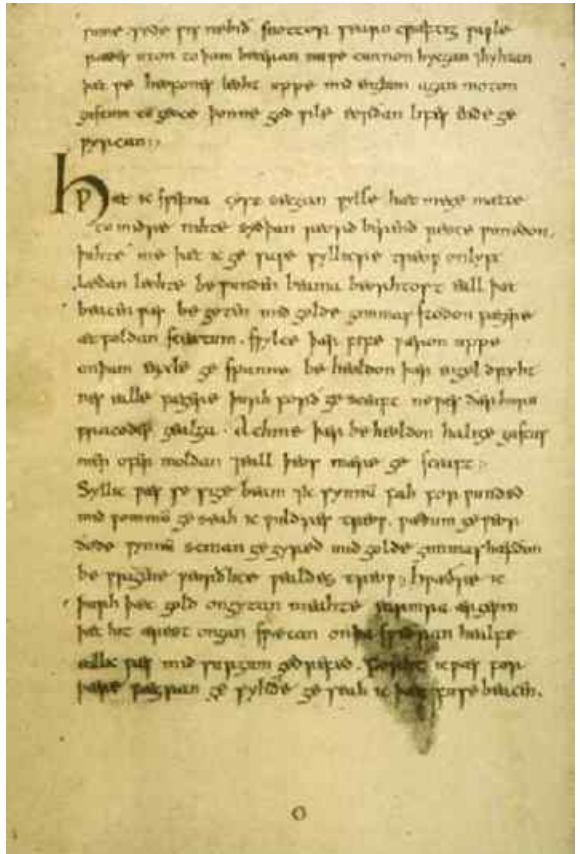 ƿæs uton to þam beteran nu ƿe cunnon hycgan ⁊hyhtan
þæt ƿe heofones leoht uppe mid englum agan moton
gastum to geoce þonne god ƿile eorðan lifes ende ge
ƿyrcan :,
Hƿæt ic sƿefna cyst secgan ƿylle hæt mege mætte
to midre nihte syðþan reord berend reste ƿunedon.
þuhte me þæt ic ge saƿe syllicre treoƿ on lyft
lædan leohte be ƿunden beama beorhtost eall þæt
beacen ƿæs be goten mid golde gimmas stodon fægere
æt foldan sceatum. sƿylce þær fife ƿæron uppe
on þam eaxle ge spanne be heoldon þær engel dryht
nes ealle fægere þurh forð ge sceaft ne ƿæs ðær huru
fracodes gealga. Ac hine þær be heoldon halige gastas
men ofer moldan ⁊eall þeos mære ge sceaft :,
Syllic ƿæs se sige beam ⁊ic synnū fah for ƿunded
mid ƿommū ge seah ic ƿuldres treoƿ. ƿædum ge ƿeor
ðode ƿynnū scinan ge gyred mid golde gimmas hæfdon
be ƿrigene ƿeorðlice ƿealdes treoƿ :, hƿæðre ic
þurh þæt gold ongytan meahte earmra ærgeƿin
þæt hit ærest ongan sƿætan on þa sƿiðran healfe
eall ic ƿæs mid surgum gedrefed. forht ic ƿæs for
þære fægran ge syhðe ge seah ic þæt fuse beacen.